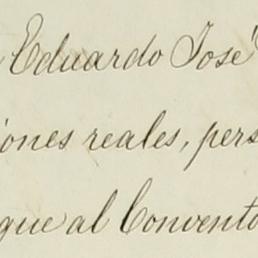 Eduardo José
iones reales, pers
que al Convento